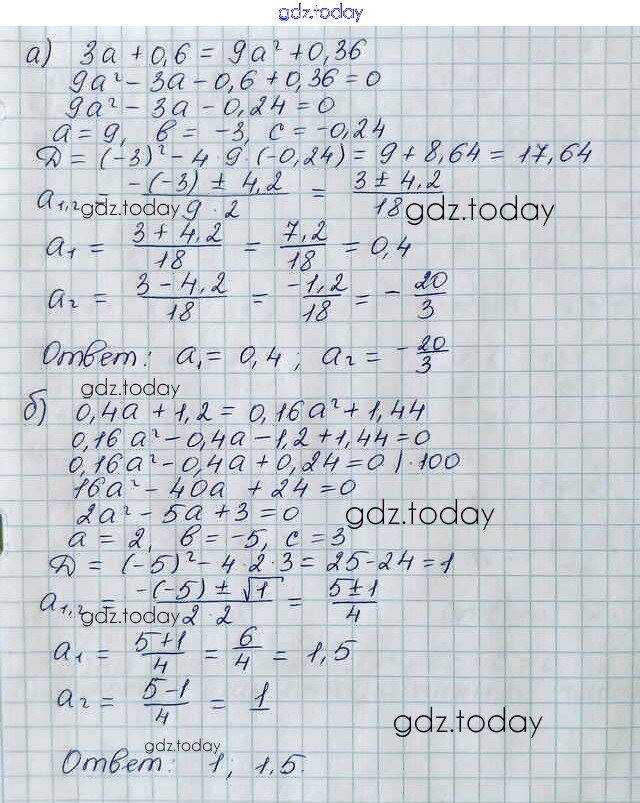 gdz.today
а) 3а + 0,6 = 9а² + 0,36
9а² − 3а − 0,6 + 0,36 = 0
9а² − 3а − 0,24 = 0
а = 9, в = −3, с = −0,24
D = (−3)² − 4 · 9 · (−0,24) = 9 + 8,64 = 17,64
а₁,₂ = −(−3) ± 4,2 / 9 · 2 = 3 ± 4,2 / 18
gdz.today gdz.today
а₁ = 3 + 4,2 / 18 = 7,2 / 18 = 0,4
а₂ = 3 − 4,2 / 18 = −1,2 / 18 = − 20 / 3
Ответ: а₁ = 0,4 ; а₂ = − 20 / 3
gdz.today
б) 0,4а + 1,2 = 0,16а² + 1,44
0,16а² − 0,4а − 1,2 + 1,44 = 0
0,16а² − 0,4а + 0,24 = 0 | · 100
16а² − 40а + 24 = 0
2а² − 5а + 3 = 0
gdz.today
а = 2, в = −5, с = 3
D = (−5)² − 4 · 2 · 3 = 25 − 24 = 1
а₁,₂ = −(−5) ± √1 / 2 · 2 = 5 ± 1 / 4
gdz.today
а₁ = 5 + 1 / 4 = 6 / 4 = 1,5
а₂ = 5 − 1 / 4 = 1
gdz.today
gdz.today
Ответ: 1; 1,5.